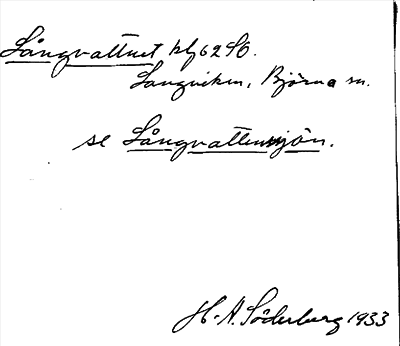 Långvattnet kbl 62 S6.
Långviken, Björna sn.
se Långvattensjön.
H. A. Söderberg 1933